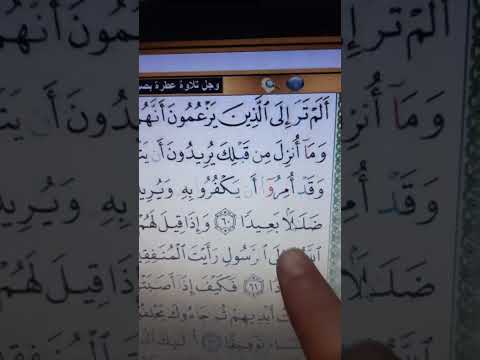 وجل تلاوة عطرة بص
أَلَمْ تَرَ إِلَى ٱلَّذِينَ يَزْعُمُونَ أَنَّهُ
وَمَآ أُنزِلَ مِن قَبْلِكَ يُرِيدُونَ أَن
وَقَدْ أُمِرُوٓا۟ أَن يَكْفُرُوا۟ بِهِۦ وَيُرِي
ضَلَـٰلًۢا بَعِيدًا ٦٠ وَإِذَا قِيلَ لَهُمْ
رَأَيْتَ ٱلْمُنَـٰفِقِ
٦١ فَكَيْفَ إِذَآ أَصَـٰبَتْ
أَيْدِيهِمْ ثُمَّ جَآءُوكَ